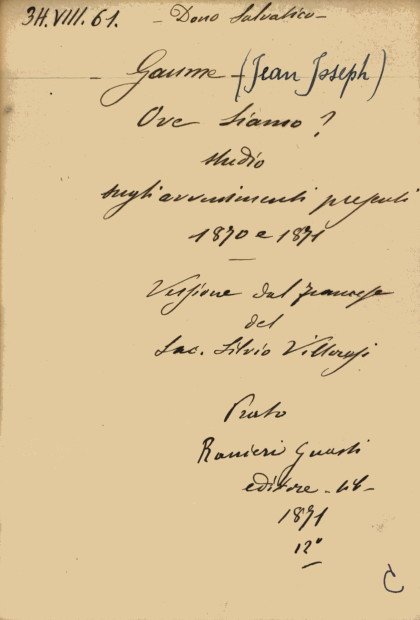 34.VIII.61. - Dono Salvatico -
- Gaume - (Jean Joseph)
Ove Siamo?
studio
sugli avvenimenti presenti
1870 e 1871
Versione dal francese
del
Sac. Silvio Villoresi
Prato
Ranieri Guasti
editore - lib -
1871
12°
C